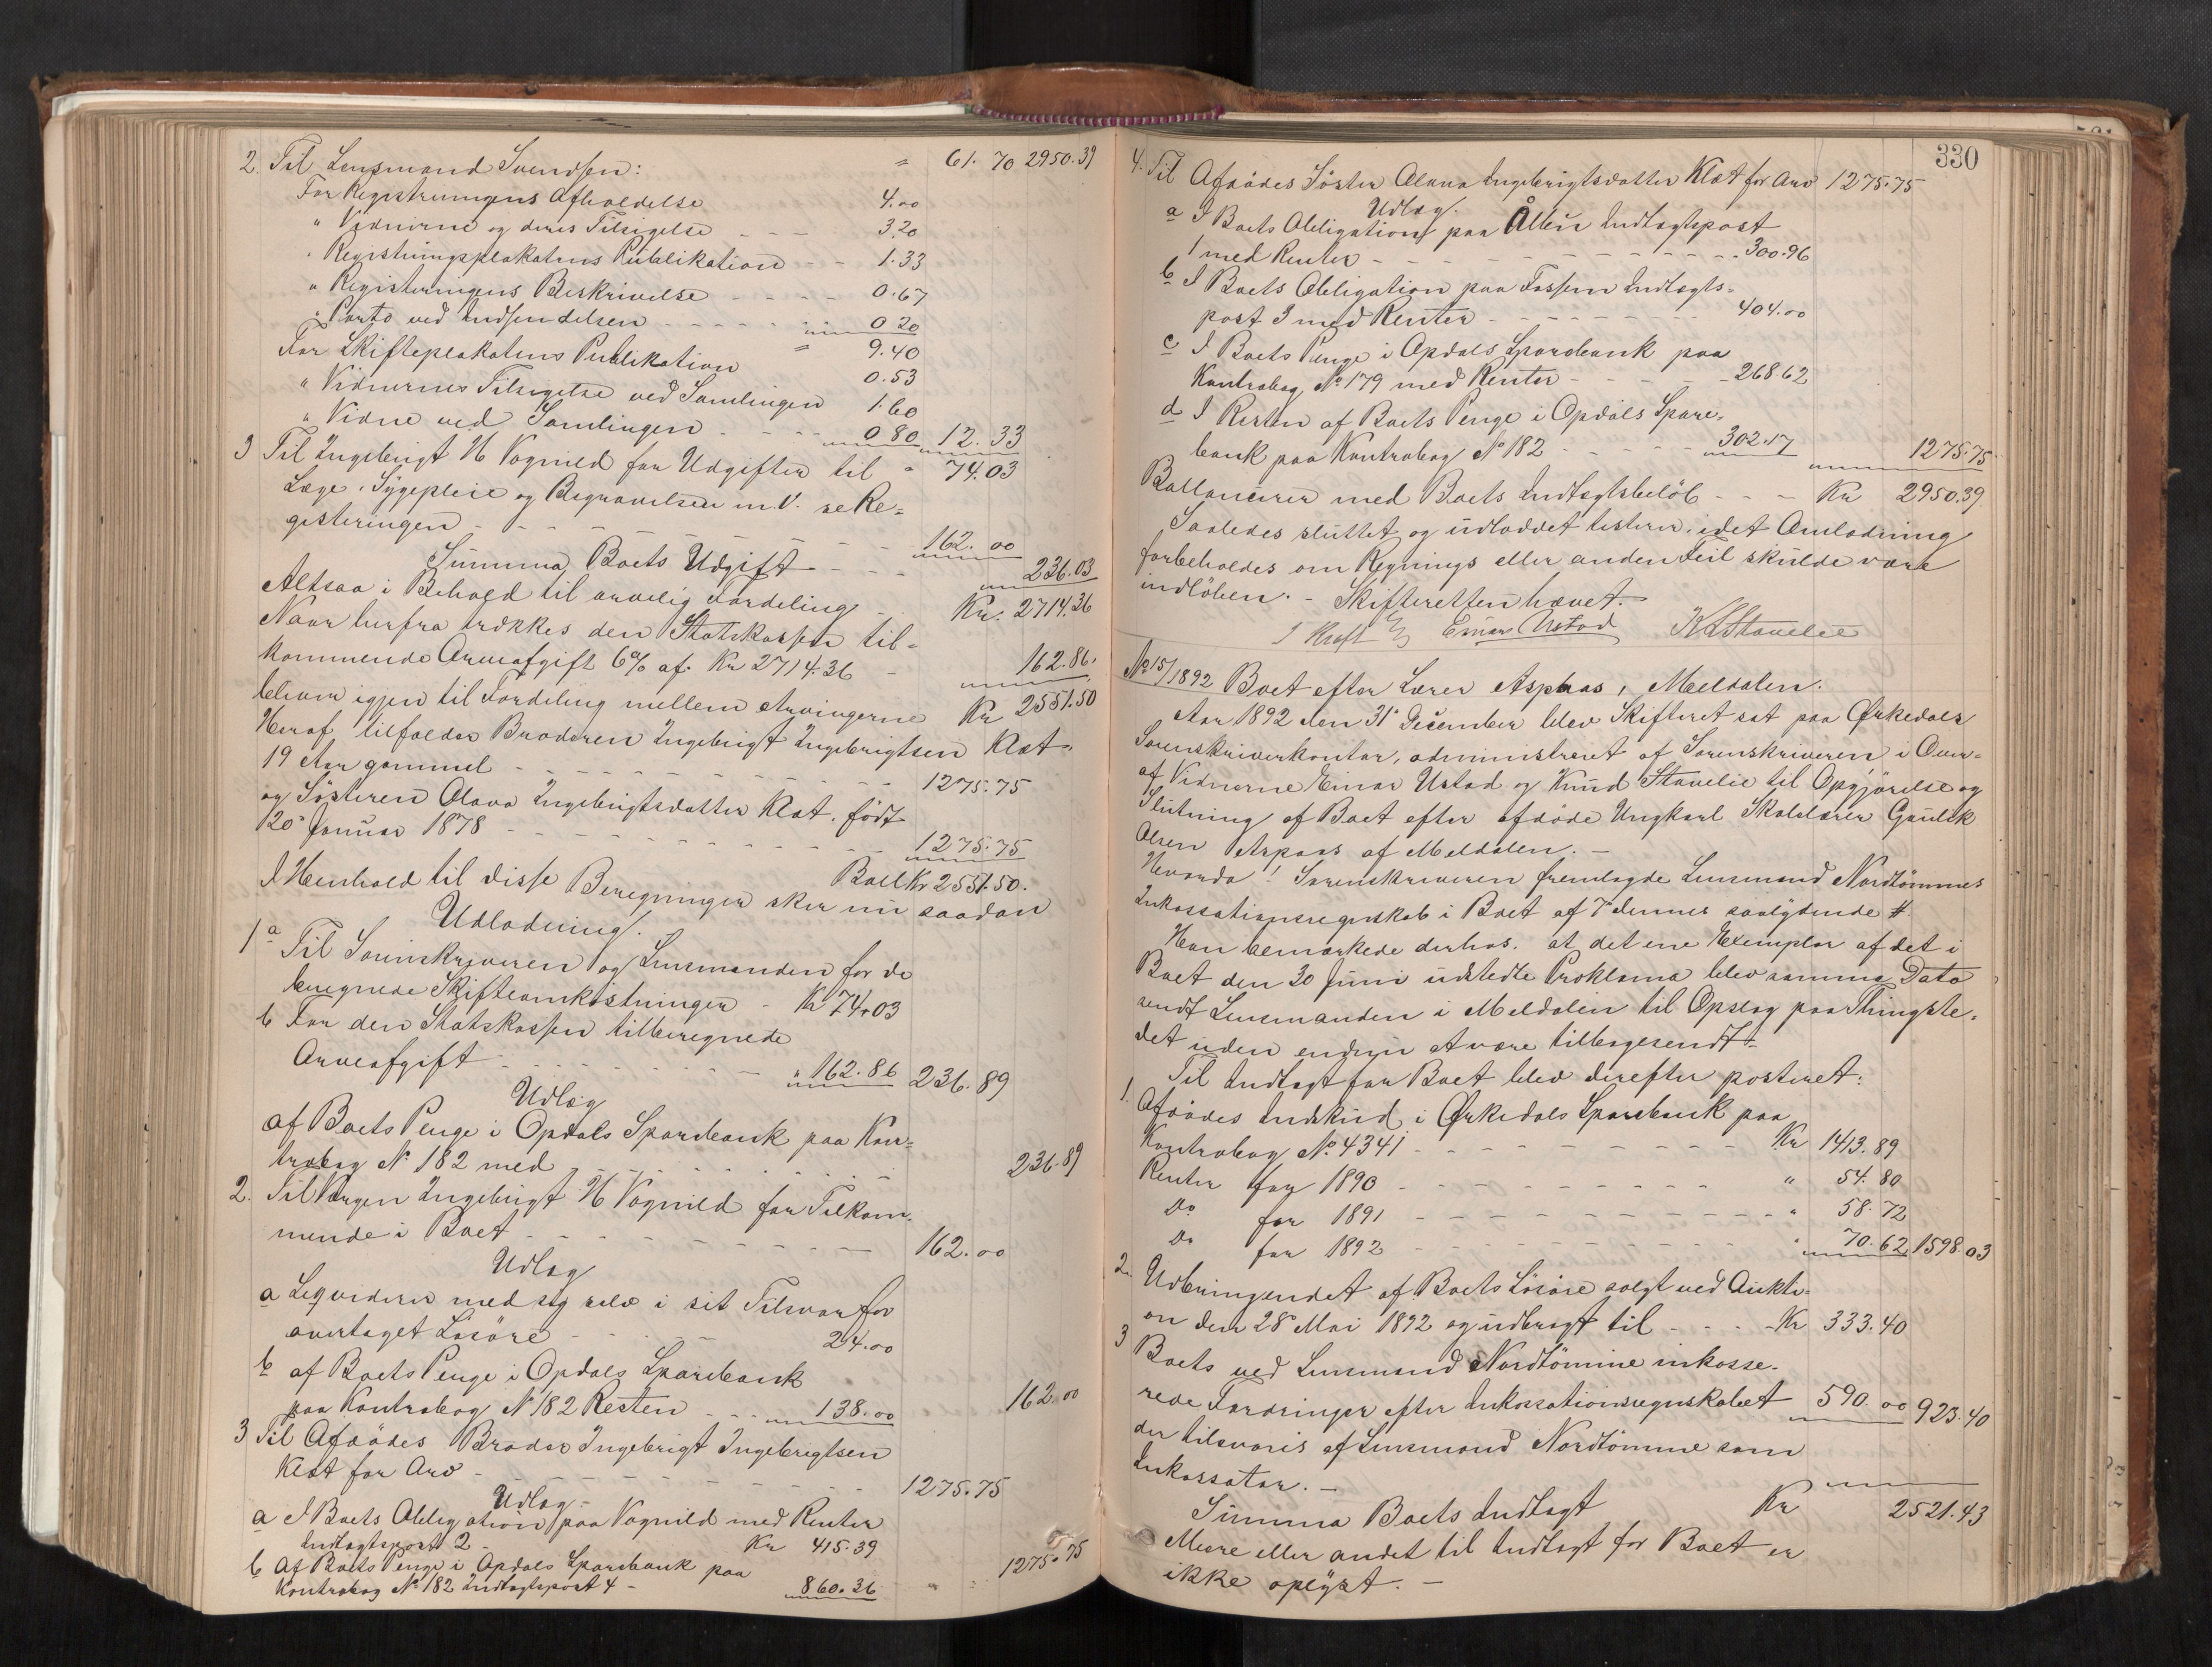 2. Til Lensmand Svendsen: " 61. 70 2950.39
For Registreringens Afholdelse 4.00
" Vidnerne og deres Tilsigelse - - - 3.20
" Registeringsplakatens Publikation - - 1.33
" Registeringens Beskrivelse - - - - 0.67
" Porto ved Indsendelsen - - - - - 0 20
" 9.40
For Skifteplakatens Publikation 0.53
" Vidnernes Tilsigelse ved Samlingen 1.60
" Vidne ved Samlingen - - - - 0 80 12. 33
" 74.03
3 Til Ingebrigt H Vognild for Udgifter til
Læge, Sygepleie og Begravelsen m.V. se Re=
gisteringen - - - - - - - - 162. 00
Summa Boets Udgift - - - - 236.03
Altsaa i Behold til arvelig Fordeling - Kr. 2714.36
Naar herfra trækkes den Statskassen til=
kommende Arveafgift 6% af Kr 2714.36 - 162.86.
bliver igjen til Fordeling mellem Arvingerne Kr 2551.50
Heraf tilfalder Broderen Ingebrigt Ingebrigtsen Klæt
19 Aar gammel - - - - - - - - 1275.75
og Søsteren Olava Ingebrigtsdatter Klæt, født
20de Januar 1878 - - - - - - - - 1275.75
Ball Kr 2551.50.
I Henhold til disse Beregninger sker nu saadan
Udlodning.
1 a Til Sorenskriveren og Lensmanden for de
beregnede Skifteomkostninger - Kr 74.03
b For den Statskassen tilberegnede
Arveafgift - - - - - - - - " 162.86 236.89
Udlæg
af Boets Penge i Opdals Sparebank paa Kon=
trabog No 182 med - - - - - - - 236.89
2. Til Værgen Ingebrigt H Vognild for Tilkom=
mende i Boet - - - - - - - - - 162.00
Udlæg
a Liqviderer med sig selv i sit Tilsvar for
overtaget Løsøre - - - - - 24.00
b af Boets Penge i Opdals Sparebank
paa Kontrabog No 182 Resten - - - 138.00 162.00
3 Til Afdødes Broder Ingebrigt Ingebrigtsen
Klæt for Arv - - - - - - - - 1275.75
Udlæg -
a I Boets Obligation paa Vognild med Renter
Indtægtspost 2 - Kr 415.39
b Af Boets Penge i Opdals Sparebank paa
Kontrabog No 182 Indtægtspost 4 - 860.36 1275.75
330
4. Til Afdødes Søster Olava Ingebrigtsdatter Klæt for Arv 1275.75
Udlæg.
a I Boets Obligation paa Ålbu Indtægtspost
1 med Renter - - - - - - - - - - 300.96
b I Boets Obligation paa Fossem Indtægts=
post 3 med Renter - - - - - - - 404.00
c I Boets Penge i Opdals Sparebank paa
Kontrabog No 179 med Renter - - - - 268.62
d I Resten af Boets Penge i Opdals Spare=
bank paa Kontrabog No 182 - - - - - 302.17 1275.75
Ballancerer med Boets Indtægtsbeløb - - - Kr 2950.39
Saaledes sluttet og udloddet testerer, idet Omlodning
forbeholdes om Regnings eller anden Feil skulde være
indløben. - Skifteretten hævet.
J Kraft Einar Ustad K Stavelie
No 15/1892 Boet efter Lærer Aspaas, Meldalen.
Aar 1892 den 31te December blev Skifteret sat paa Ørkedals
Sorenskriverkontor, administreret af Sorenskriveren i Over=
af Vidnerne Einar Ustad og Knud Stavelie til Opgjørelse og
Slutning af Boet efter afdøde Ungkarl Skolelærer Gaulik
Olsen Aspaas af Meldalen. -
Hvorda! Sorenskriveren fremlagde Lensmand Nordtømmes
Inkassationsregnskab i Boet af 7de dennes saalydende #.
Han bemærkede derhos, at det ene Exemplar af det i
Boet den 30 Juni udstedte Proklama blev samme Dato
sendt Lensmanden i Meldalen til Opslag paa Thingste=
det uden endnu at være tilbagesendt. -
Til Indtægt for Boet blev derefter posteret:
1. Afdødes Indskud i Ørkedals Sparebank paa
Kontrabog No 4341 - - - - - - - - - Kr 1413.89
Renter for 1890 - - - - - - - - - " 54.80
Do for 1891 - - - - - - - - - - " 58.72
Do for 1892 - - - - - - - - - " 70.62 1598.03
2. Udbringendet af Boets Løsøre solgt ved Aukti=
on den 28de Mai 1892 og udbragt til - - - Kr 333.40
3 Boets ved Lensmand Nordtømme inkasse=
rede Fordringer efter Inkassationsregnskabet 590.00 923.40
der tilsvares af Lensmand Nordtømme som
Inkassator. -
Summa Boets Indtægt Kr 2521.43
Mere eller andet til Indtægt for Boet er
ikke oplyst. -